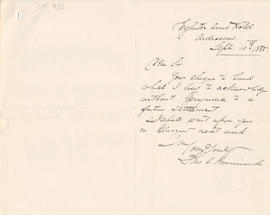 Eglinton Arms Hotel
Ardrossan
Sept 10th 188
Dear Sir
Your cheque to hand
which I beg to acknowledge
without prejudice to a
future settlement
I shall wait upon you
in Glasgow next week
I am
Yours truly